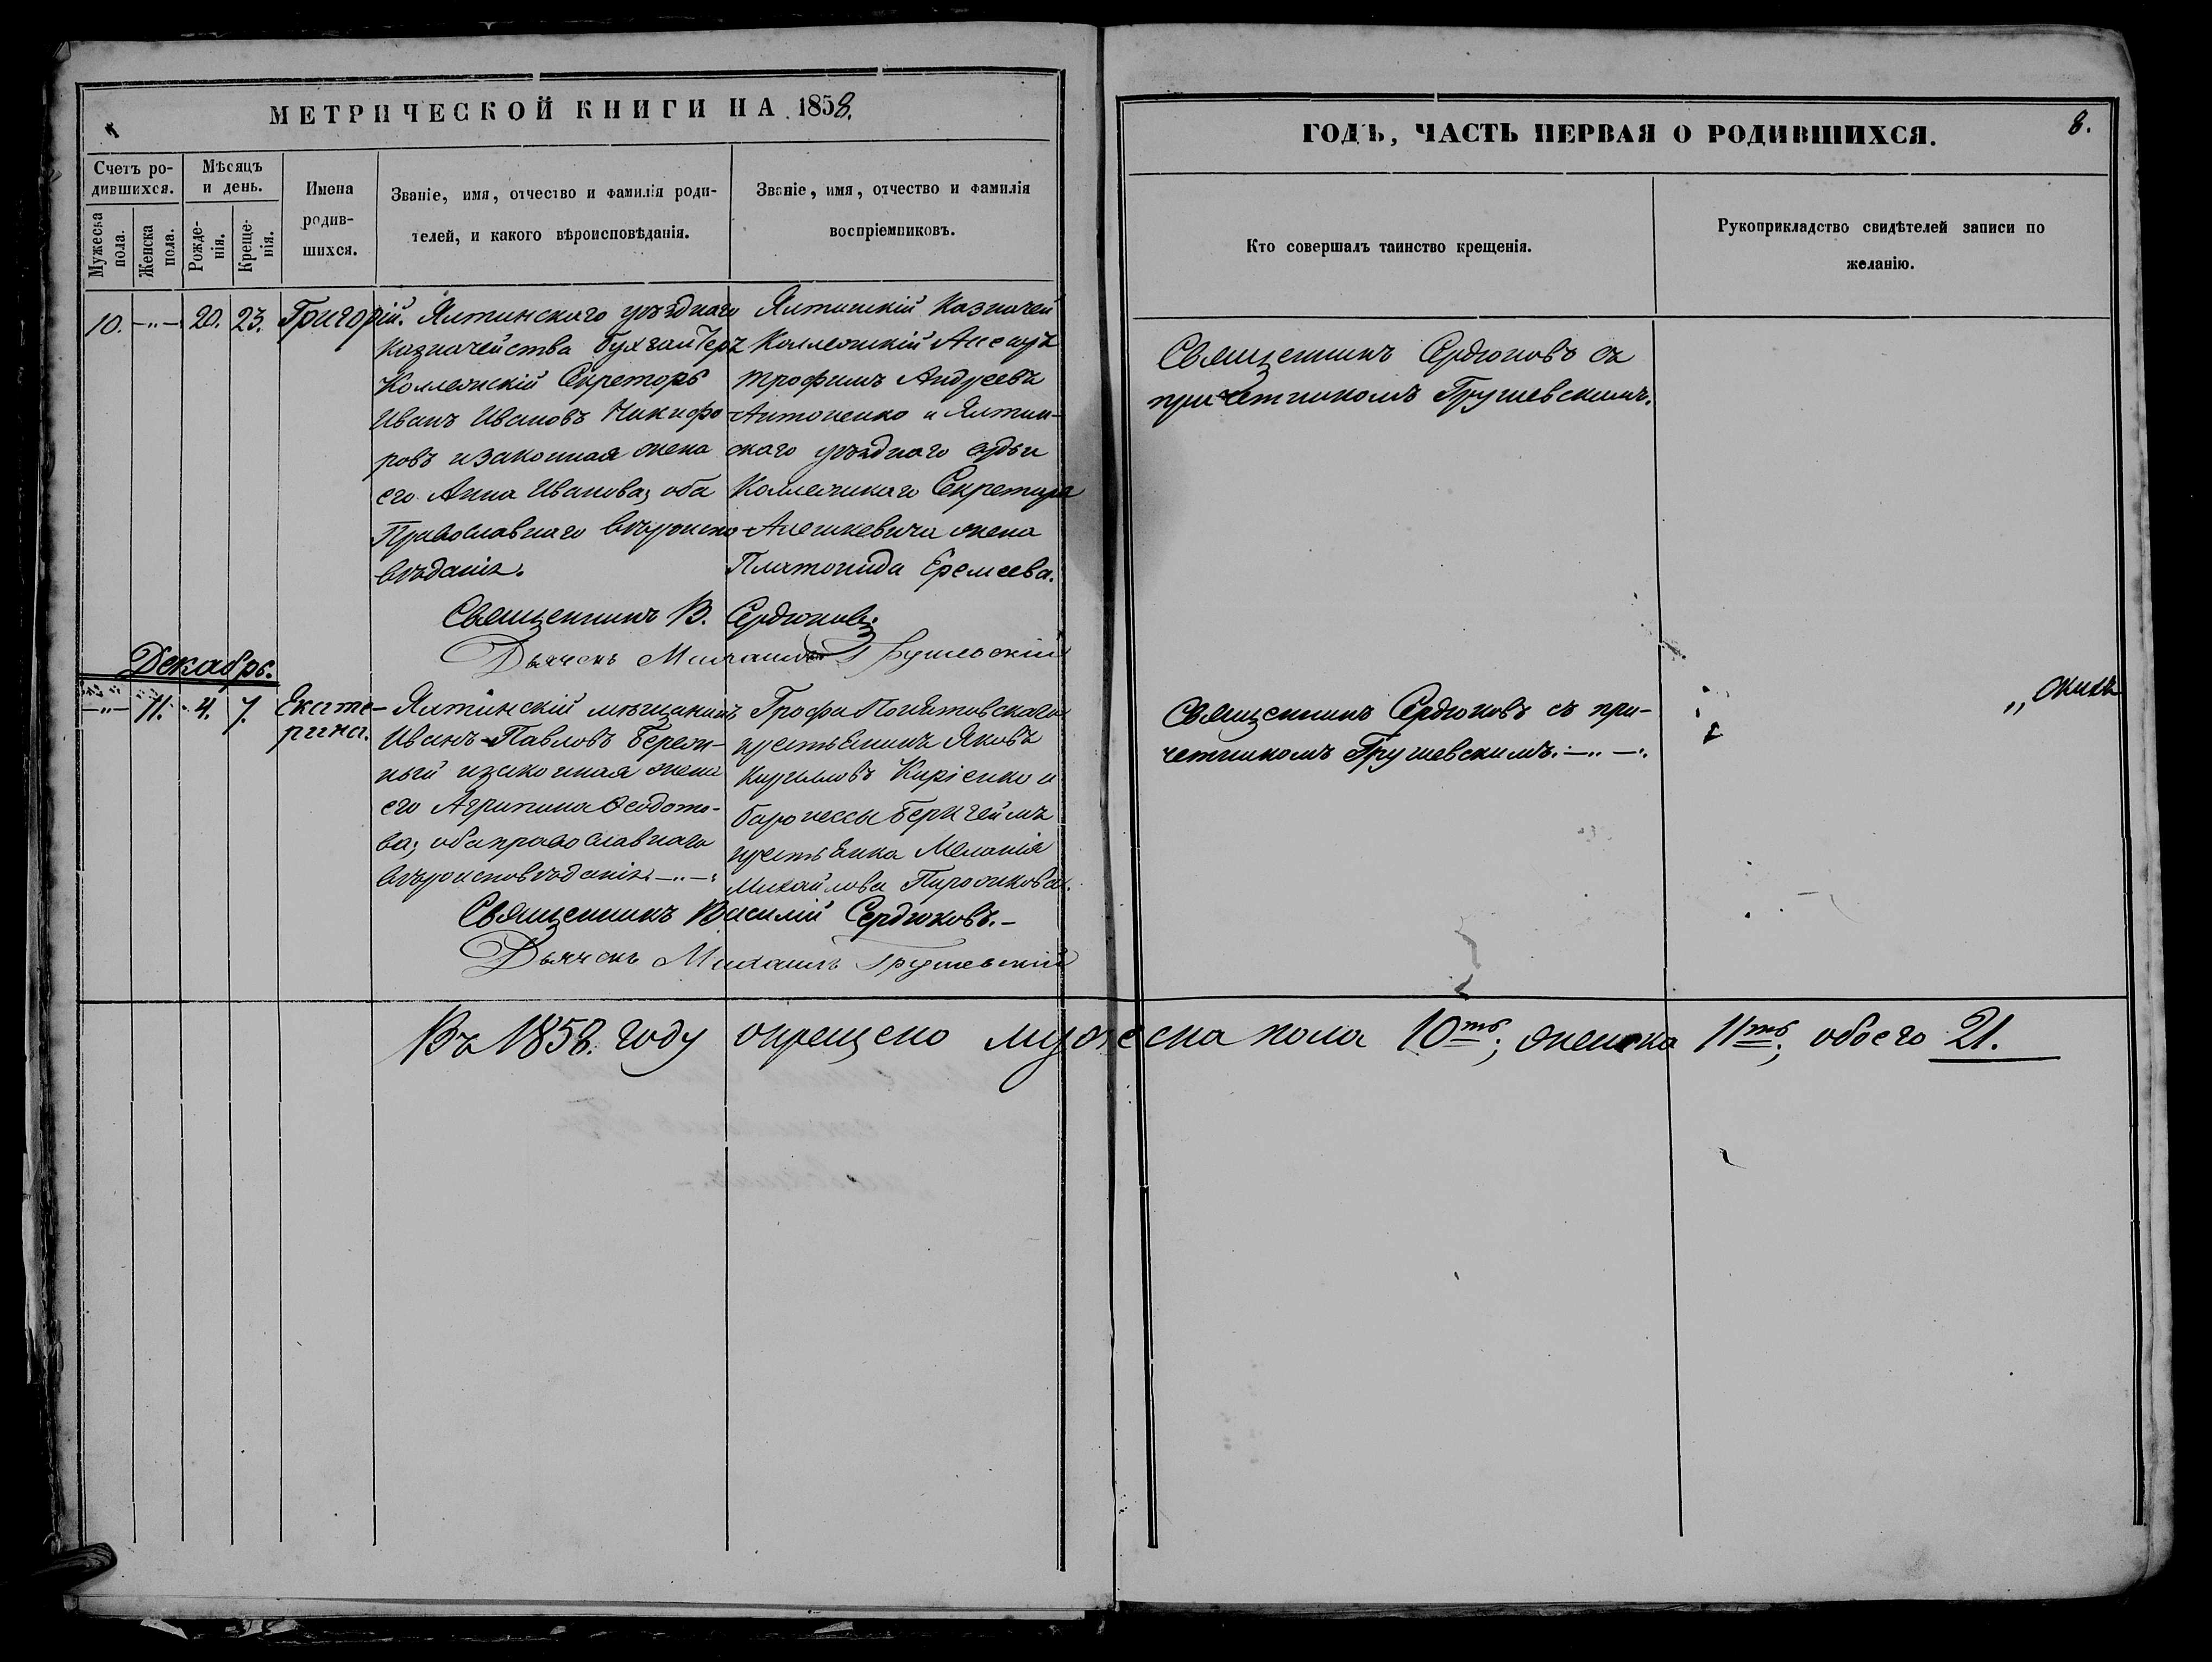 МЕТРИЧЕСКОЙ КНИГИ НА 1858.
Счетъ родившихся.
Мужеска пола.
Женска пола.
Мѣсяцъ и день.
Рожденія.
Крещенія.
Имена родившихся.
Званіе, имя, отчество и фамилія родителей, и какого вѣроисповѣданія.
Званіе, имя, отчество и фамилія воспріемниковъ.
10. —„— 20. 23. Григорій.
Ялтинскаго уѣзднаго
Казначейства бухгалтеръ
Коллежскій Секретарь
Иванъ Ивановъ Никифо-
ровъ и законная жена
его Анна Иванова; оба
Православнаго вѣроиспо-
вѣданія.
Ялтинскій Казначей
Коллежскій Асесоръ
Трофимъ Андреевъ
Антоненко и Ялтин-
скаго уѣзднаго судьи
Коллежскаго Секретаря
жена
Платонида Еремеева.
Священникъ В. Сердюковъ.
Дьячокъ Михаилъ Грушевскій
Декабрь.
—„— 11. 4. 7. Екате-
рина.
Ялтинскій мѣщанинъ
Иванъ Павловъ Береж-
ный и законная жена
его Агрипина Ѳеодото-
ва; оба православнаго
вѣроисповѣданія. —„—
Графа Понятовскаго
крестьянинъ Яковъ
Кирилловъ Кирiенко и
баронессы Беркгеймъ
крестьянка Меланія
Михайлова Пирожкова.
Священникъ Василій Сердюковъ. —
Дьячокъ Михаилъ Грушевскій
Въ 1858. году окрещено мужеска пола 10ть; женска 11ть; обоего 21.
ГОДЪ, ЧАСТЬ ПЕРВАЯ О РОДИВШИХСЯ.
8.
Кто совершалъ таинство крещенія.
Рукоприкладство свидѣтелей записи по желанію.
Священникъ Сердюковъ съ
причетникомъ Грушевскимъ.
Священникъ Сердюковъ съ при-
четникомъ Грушевскимъ. —„—